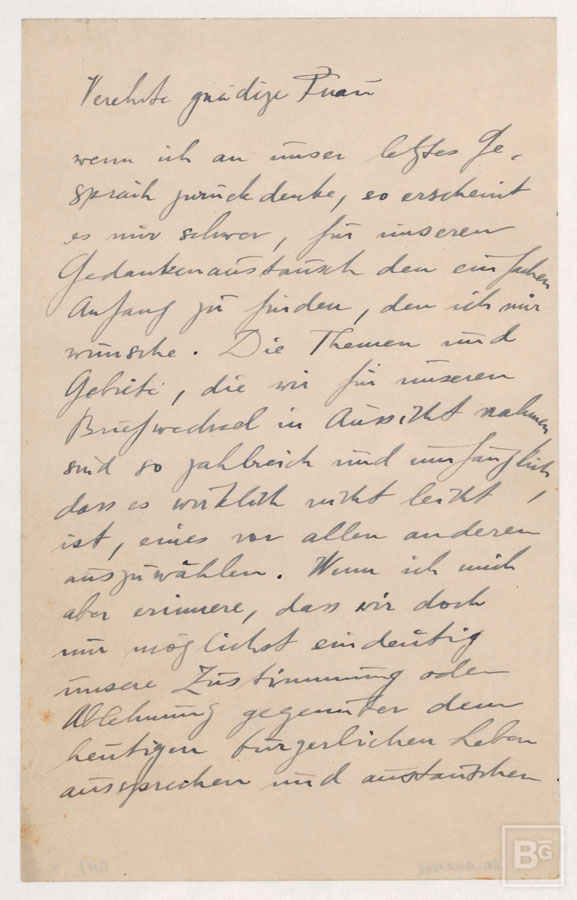 Verehrte gnädige Frau
wenn ich an unser letztes Ge-
spräch zurückdenke, so erscheint
es mir schwer, für unseren
Gedankenaustausch den einfachen
Anfang zu finden, den ich mir
wünsche. Die Themen und
Gebiete, die wir für unseren
Briefwechsel in Aussicht nahmen,
sind so zahlreich und umfänglich,
dass es wirklich nicht leicht
ist, eines vor allen anderen
auszuwählen. Wenn ich mich
aber erinnere, dass wir doch
nur möglichst eindeutig
unsere Zustimmung oder
Ablehnung gegenüber dem
heutigen bürgerlichen Leben
aussprechen und austauschen
BG